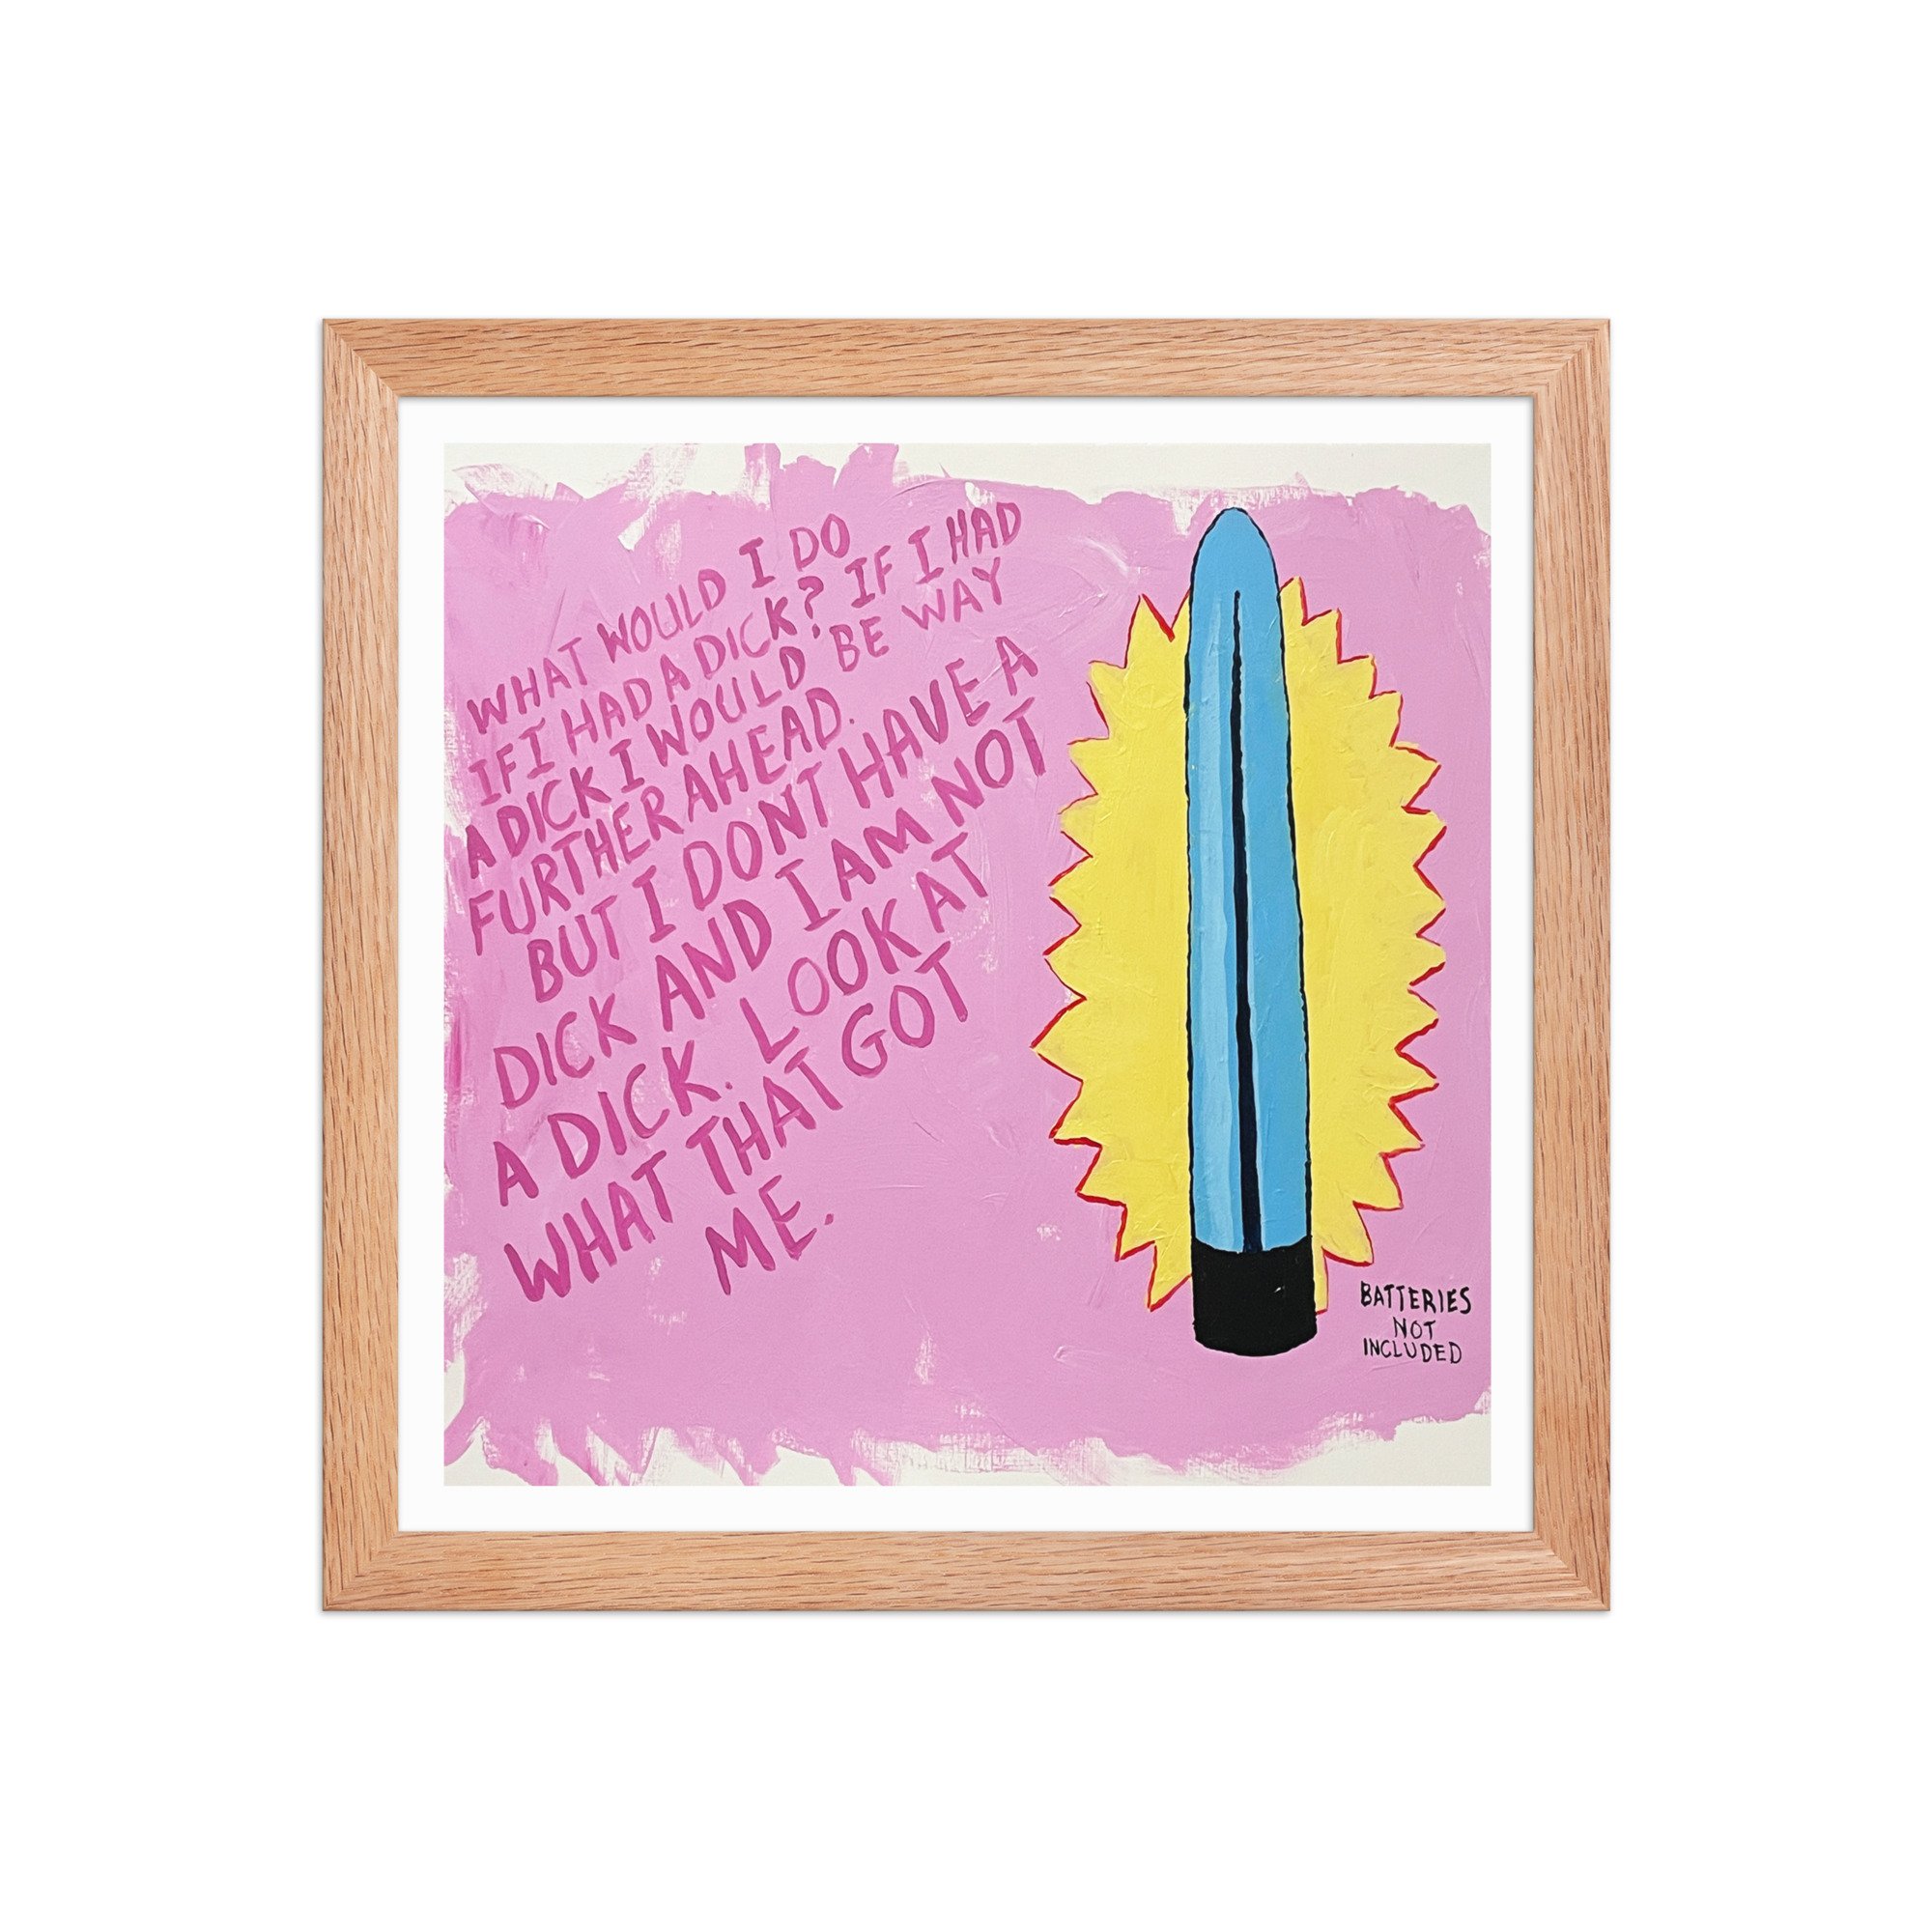 WHAT WOULD I DO
IF I HAD A DICK? IF I HAD
A DICK I WOULD BE WAY
FURTHER AHEAD.
BUT I DONT HAVE A
DICK AND I AM NOT
A DICK. LOOK AT
WHAT THAT GOT
ME.
BATTERIES
NOT
INCLUDED